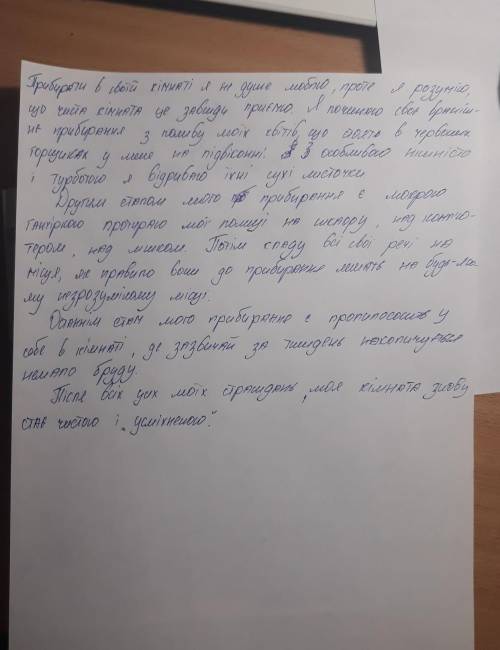 Прибирати в своїй кімнаті я не дуже люблю, проте я розумію,
що чиста кімната це завжди приємно. Я починаю своє враніш-
нє прибирання з поливу моїх квітів, що в червоних
горщиках у мене на підвіконні. З особливою ніжністю
і турботою я відриваю їхні сухі листочки
Другим етапом мого прибирання є мокрою
ганчіркою протираю мої полиці на шкафу, над компю-
тером, над ліжком. Потім кладу всі свої речі на
місця, як правило вони до прибирання лежать на будь-яко-
му незрозумілому місці.
Останнім етап мого прибирання є пропилососить у
себе в кімнаті, де зазвичай за тиждень накопичується
немало бруду.
Після всіх цих моїх страждань, моя кімната знову
стає чистою і „усміхненою".